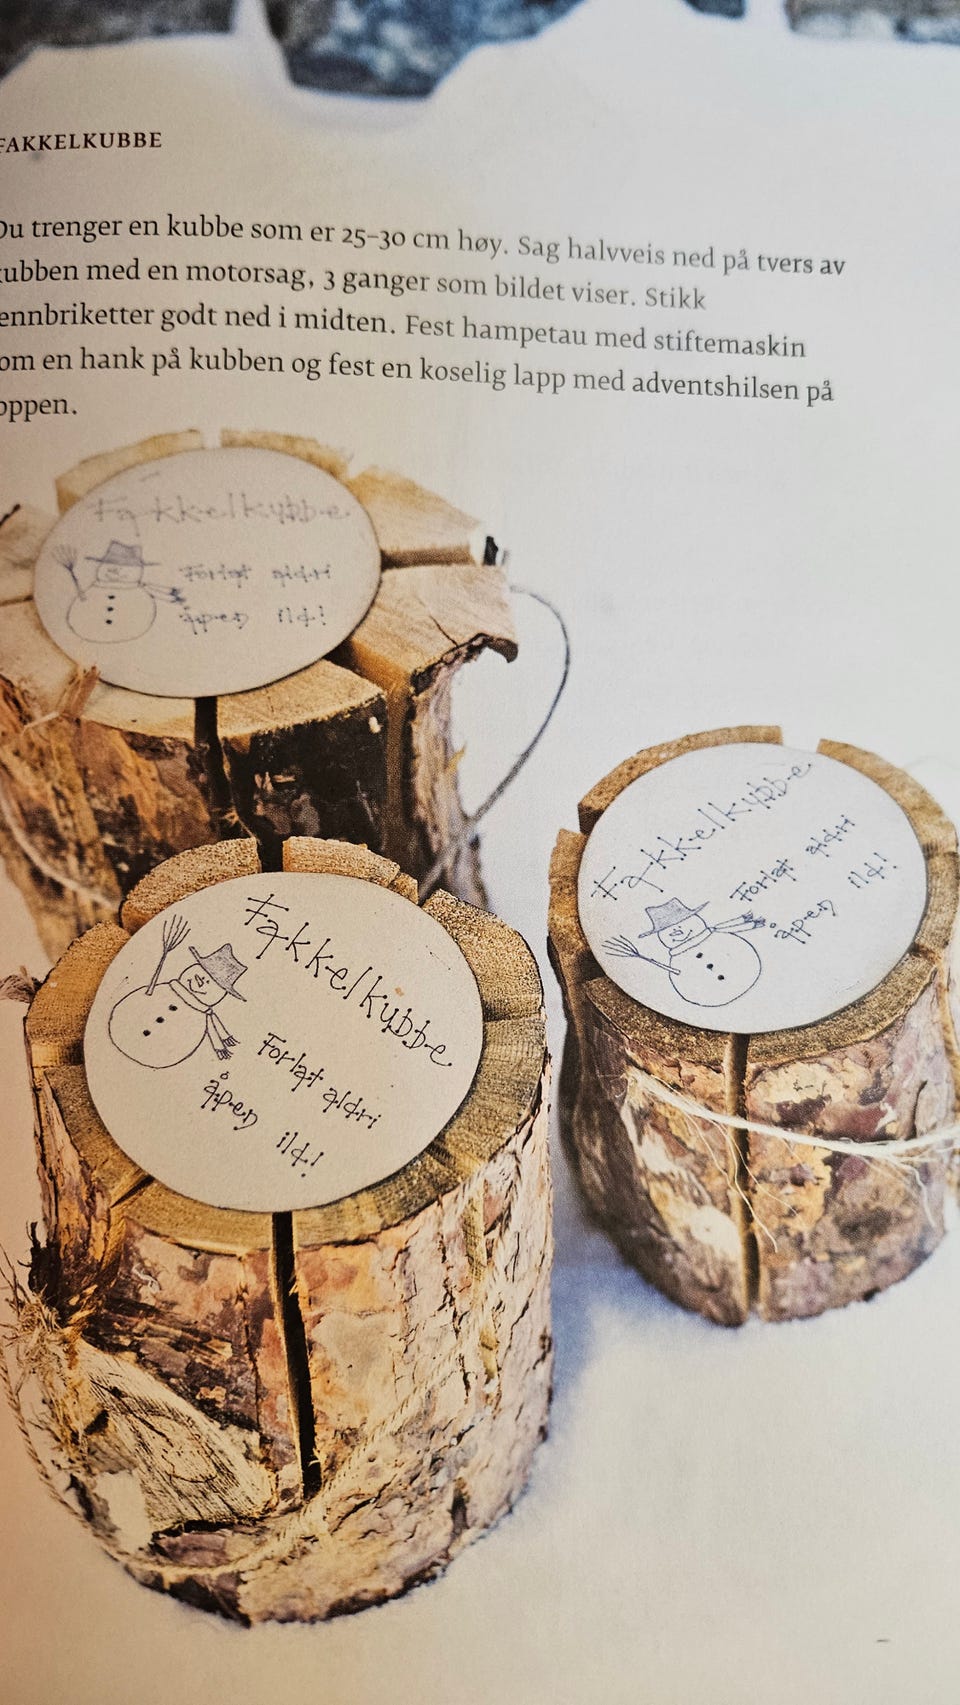 FAKKELKUBBE
Du trenger en kubbe som er 25–30 cm høy. Sag halvveis ned på tvers av
kubben med en motorsag, 3 ganger som bildet viser. Stikk
ennbriketter godt ned i midten. Fest hampetau med stiftemaskin
om en hank på kubben og fest en koselig lapp med adventshilsen på
oppen.
Fakkelkubbe
Forlat aldri
åpen ild!
Fakkelkubbe
Forlat aldri
åpen ild!
Fakkelkubbe
Forlat aldri
åpen ild!